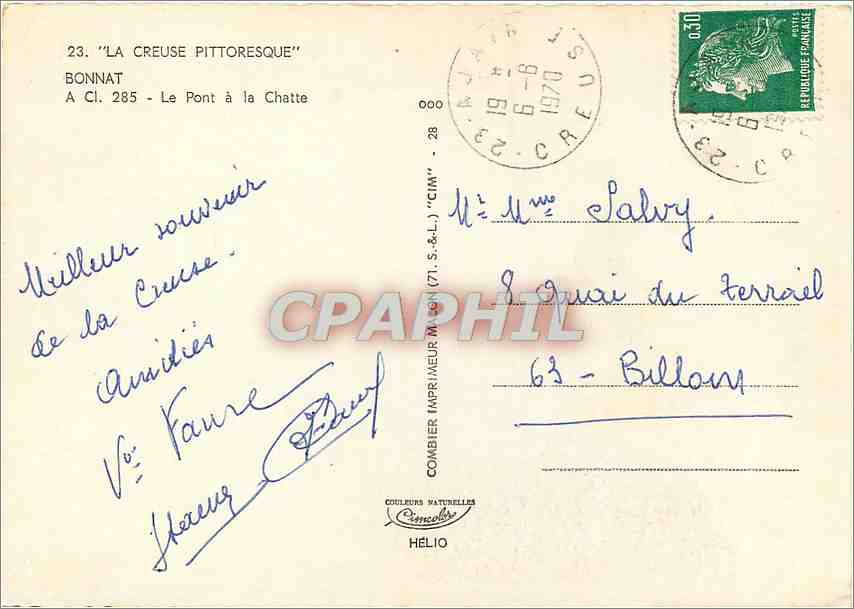 23. "LA CREUSE PITTORESQUE"
BONNAT
A Cl. 285 - Le Pont à la Chatte
Meilleur souvenir
de la Creuse.
Amitiés
Vve Faure
COMBIER IMPRIMEUR MACON (71. S.-&-L.) "CIM" - 28 000
COULEURS NATURELLES
Cimcolor
HÉLIO
CPAPHIL
19 H
6 - 6
1970
23 - CREUSE
0,30
POSTES
REPUBLIQUE FRANÇAISE
Mr Mme Salvy.
8 Quai du Terrail
63 - Billom